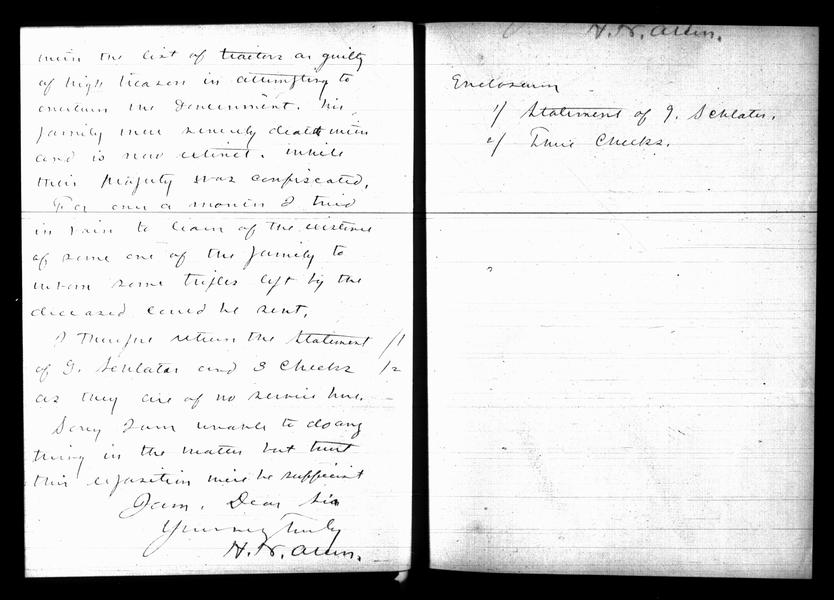 with the list of traitors as guilty
of high treason in attempting to
overturn the Government. His
family were severely dealt with
and is now extinct. While
their property was confiscated.
For over a month I tried
in vain to learn of the existence
of some one of the family to
whom some trifles left by the
deceased could be sent.
I therefore return the Statement /1
of G. Schlatar and 3 Checks /2
as they are of no service here.
Sorry I am unable to do any
thing in the matter but trust
this exposition will be sufficient
I am, Dear Sir
Yours very Truly
H. N. Allen.
H. N. Allen.
Enclosures
1/ Statement of G. Schlatar.
2/ Three Checks.